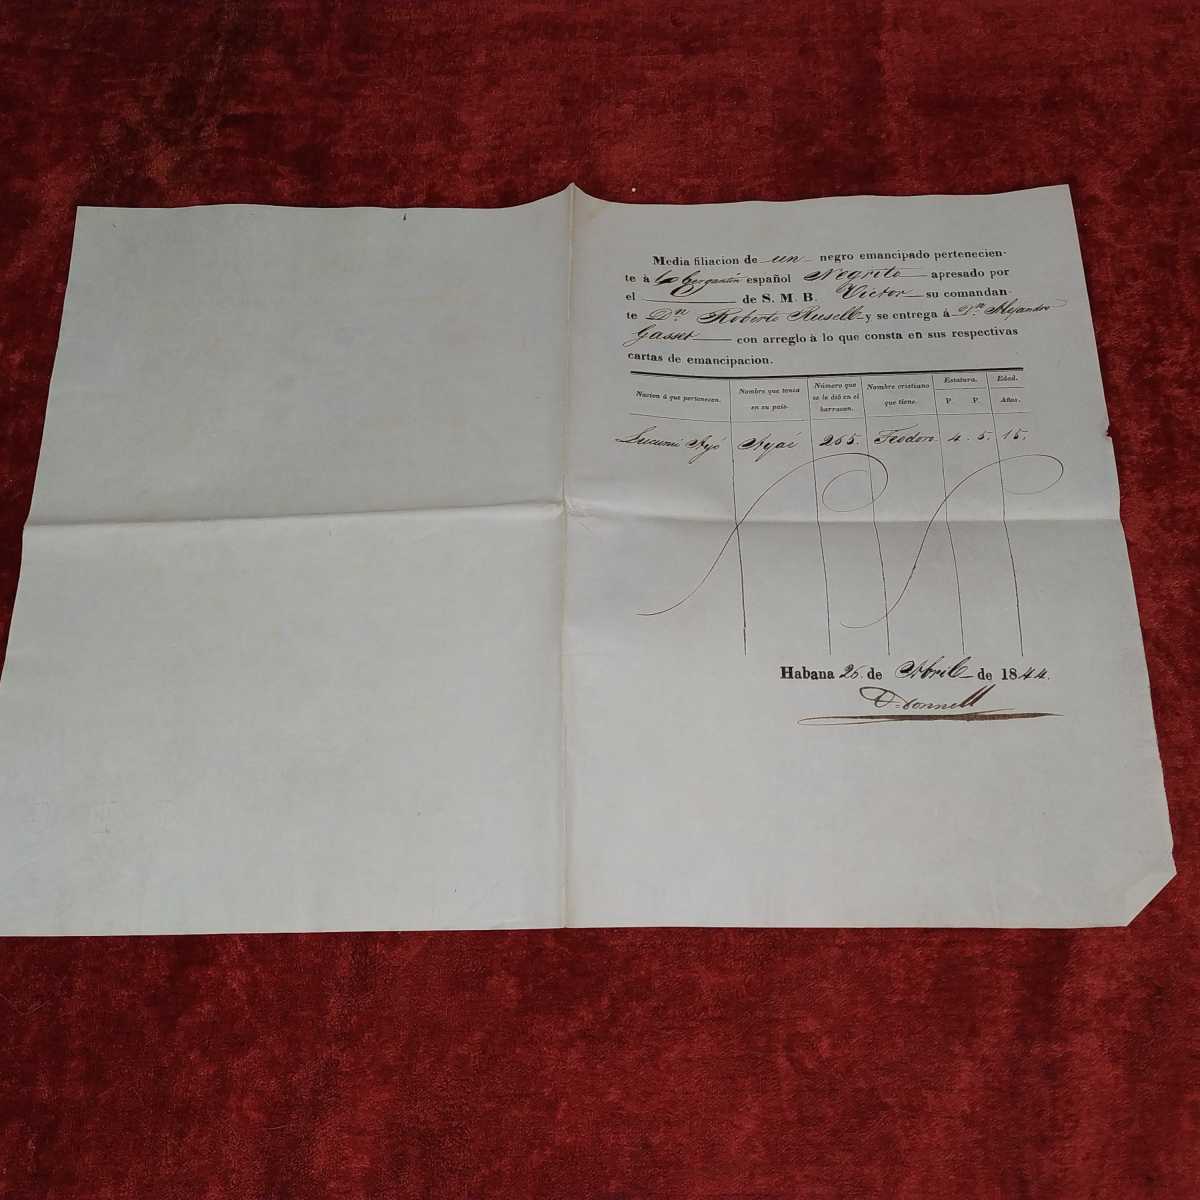 Media filiacion de un negro emancipado pertenecien-
te á Bergantin español Negrito apresado por
el de S. M. B. Victor su comandan-
te Dn. Roberto Rusell y se entrega á Dn. Alejandro
Gasset con arreglo á lo que consta en sus respectivas
cartas de emancipacion.
Nacion á que pertenecen. Nombre que tenia en su pais. Número que se le dió en el barracon. Nombre cristiano que tiene. Estatura. P. P. Edad. Años.
Lucumí Ayó Ayaí 265. Feodoro 4. 5. 15.
Habana 26 de Abril de 1844.
O'donnell